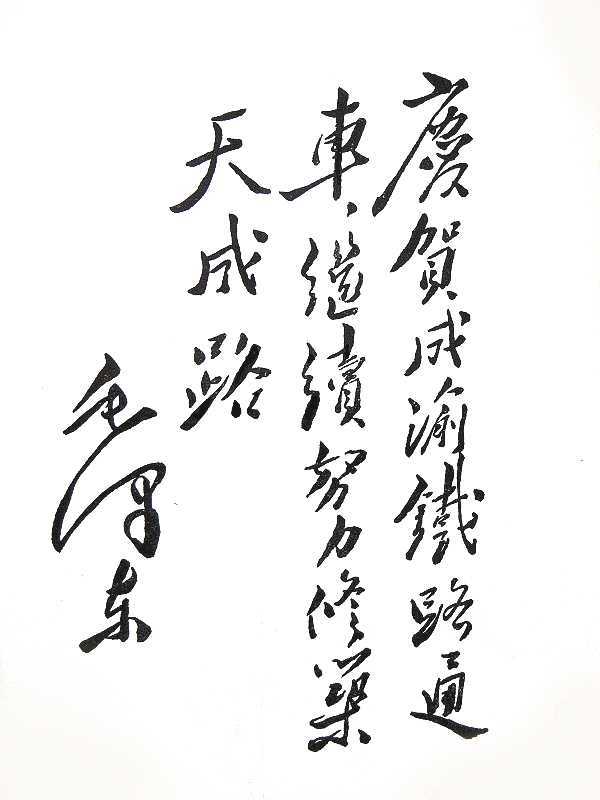 慶賀成渝鐵路通
車、繼續努力修築
天成路
毛泽东